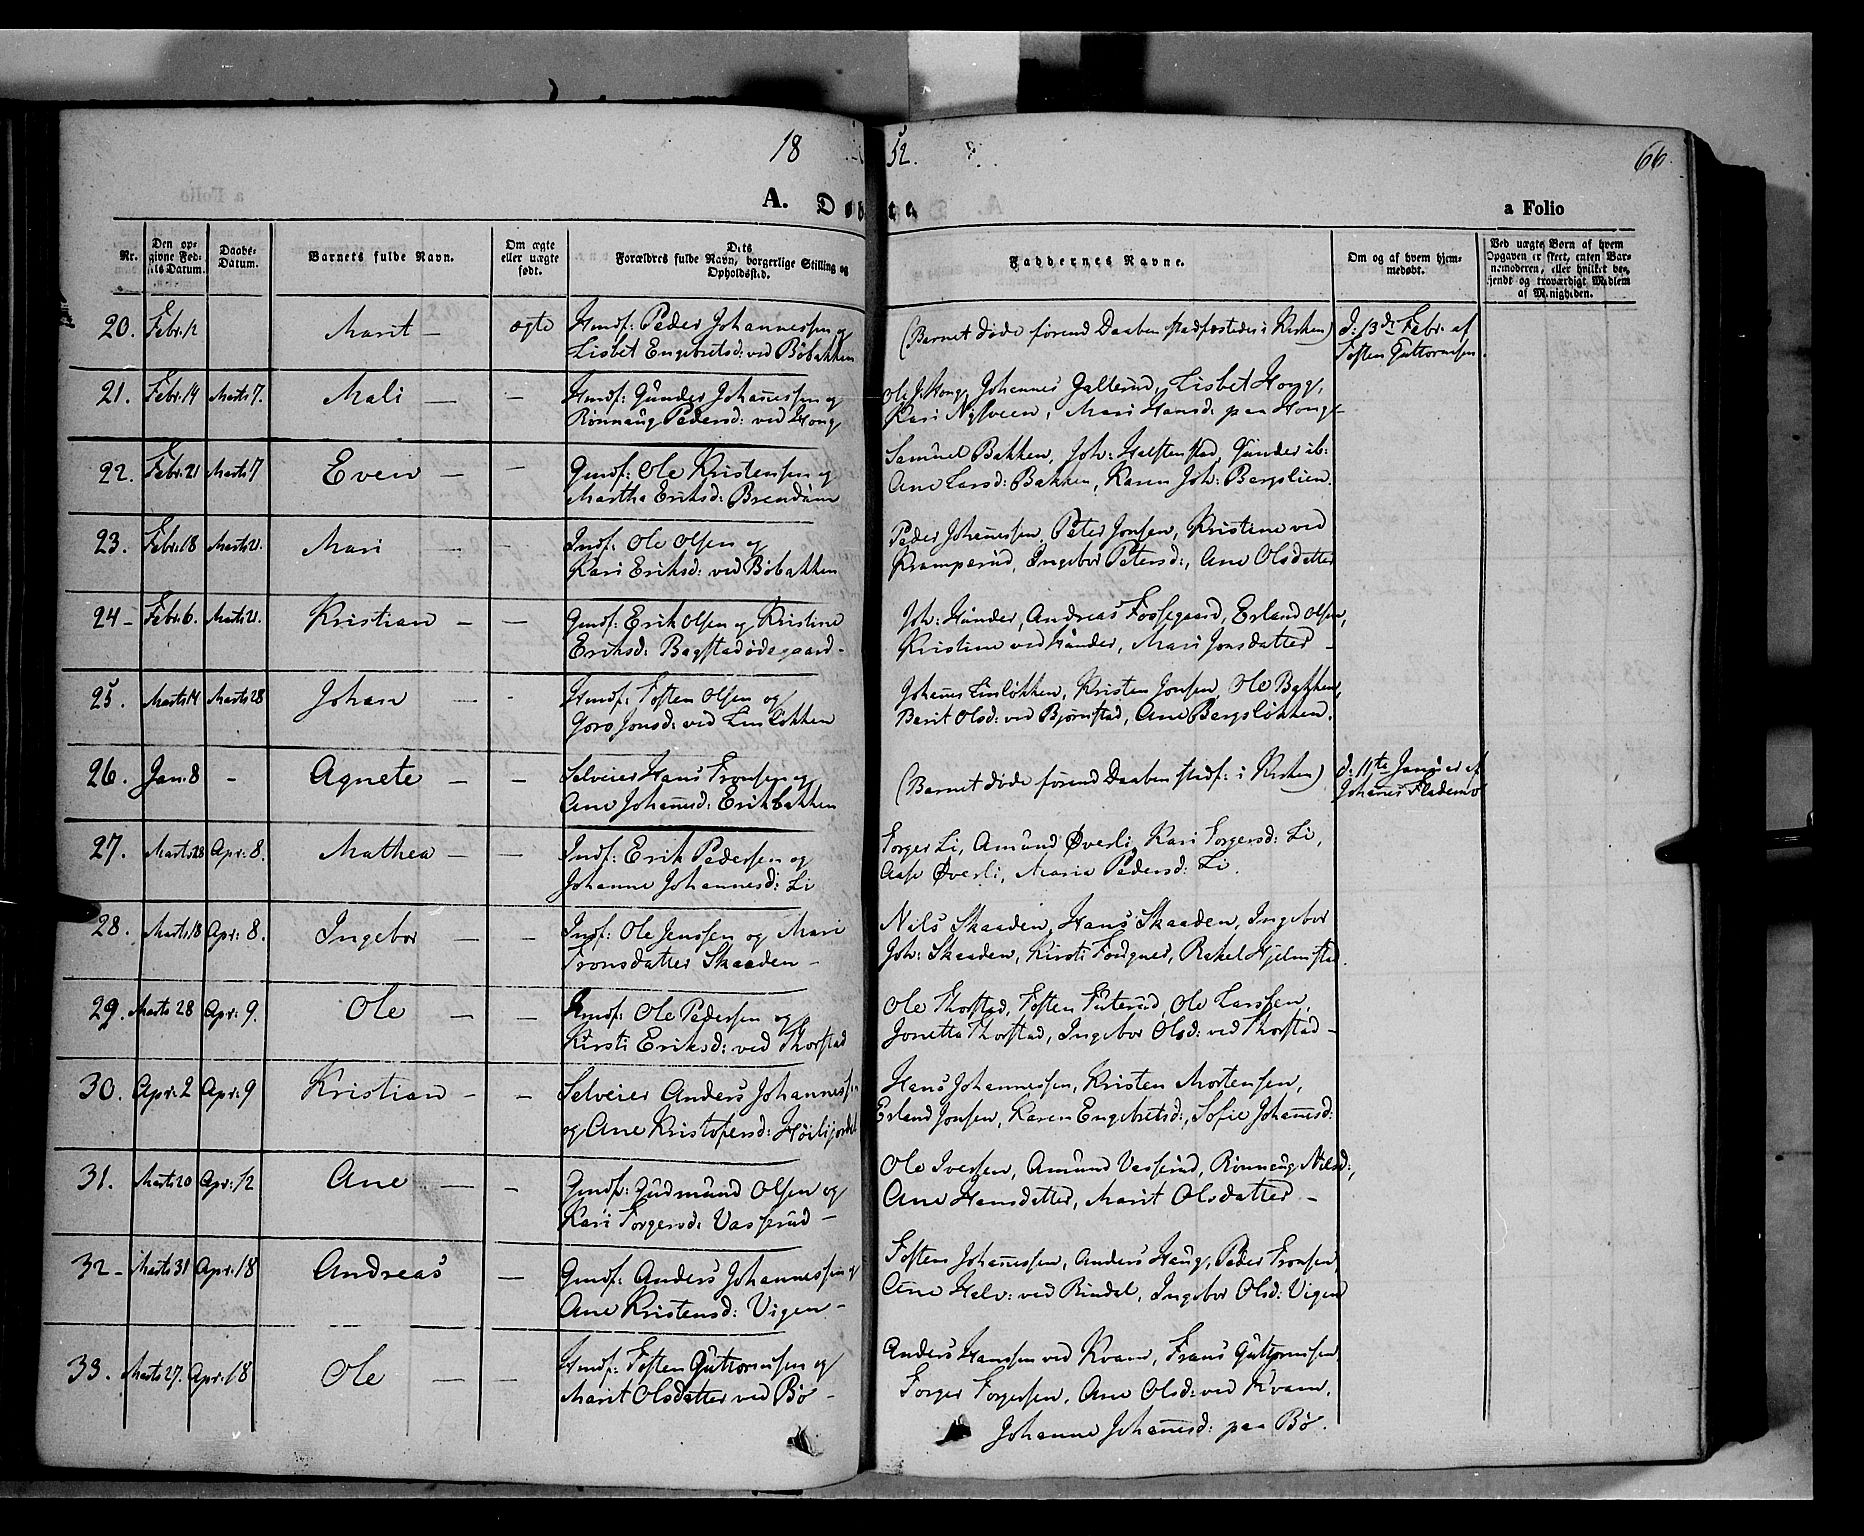 18 52. 66.
A. Døbte. a Folio
Nr. Den opgivne Fødsels Datum. Daabs-Datum. Barnets fulde Navn. Om ægte eller uægte født. Dets Forældres fulde Navn, borgerlige Stilling og Opholdssted. Faddernes Navne. Om og af hvem hjemmedøbt. Ved uægte Børn af hvem Opgaven er skeet, enten Barnemoderen, eller hvilket bekjendt og troværdigt Medlem af Menigheden.
20. Febr. 12 Marit - ægte Huusf: Peder Johannessen og (Barnet døde førend Daaben stadfæstedes i Kirken) d: 13de Febr. af
Lisbet Engebretsd: ved Bøbakken Tosten Guttormsen.
21. Febr. 14 Marts 7. Mali - - Huusf: Gunder Johannessen og Ole J. Hong, Johannes Jallerud, Lisbet Hong,
Rønnaug Pedersd: ved Hong Kari Nysveen, Mari Hansd: paa Hong-
22. Febr. 21 Marts 7 Even - - Gmdf: Ole Kristensen og Samuel Bakken, Joh: Halstenstad, Gunder ib:
Martha Eriksd: Brendum Ane Larsd: Bakken, Karen Joh: Bergslien.
23. Febr. 18 Marts 21. Mari - - Indf: Ole Olsen og Peder Johannessen, Peter Jonsen, Kristine ved
Kari Eriksd: ved Bøbakken Kramperud, Ingebor Petersd:, Ane Olsdatter
24- Febr. 6. Marts 21. Kristian - - Gmdf: Erik Olsen og Kristine Joh: Hunder, Andreas Fossegaard, Erland Olsen,
Eriksd: Bagstadødegaard- Kristine ved Hunder, Mari Jonsdatter -
25. Marts 14 Marts 28 Johan - - Huusf: Tosten Olsen og Johannes Linløkken, Kristen Jonsen, Ole Bakken,
Goro Jonsd: ved Linløkken Berit Olsd: ved Bjørnstad, Ane Bergsløkken.
26. Jan. 8 - Agnete - - Selveier Hans Tronsen og (Barnet døde førend Daaben stadf: i Kirken) d: 11te Januar af
Ane Johannesd: Erikbakken Johannes Flademo
27. Marts 28 Apr: 8. Mathea - - Indf: Erik Pedersen og Torger Li, Amund Øverli, Kari Torgersd: Li,
Johanne Johannesd: Li Aase Øverli, Maria Pedersd: Li.
28. Marts 18 Apr: 8. Ingebor - - Indf: Ole Jenssen og Mari Nils Skaaden, Hans Skaaden, Ingebor
Tronsdatter Skaaden - Joh: Skaaden, Kirsti Fougner, Rakel Hjelmstad.
29. Marts 28 Apr: 9. Ole - - Huusf: Ole Pedersen og Ole Thorstad, Tosten Futerud, Ole Larssen,
Kirsti Eriksd: ved Thorstad Jonetta Thorstad, Ingebor Olsd: ved Thorstad -
30. Apr: 2 Apr: 9 Kristian - - Selveier Anders Johannessen Hans Johannessen, Kristen Mortensen,
og Ane Kristofersd: Høilijordet Erland Jonsen, Karen Engebretsd:, Sofie Johannesd:
31. Marts 20 Apr: 12 Ane - - Gmdf: Gudmund Olsen og Ole Iversen, Amund Vasserud, Rønnaug Nilsd:,
Kari Torgersd: Vasserud - Ane Hansdatter, Marit Olsdatter -
32- Marts 31 Apr: 18 Andreas - Gmdf: Anders Johannessen og Tosten Johannessen, Anders Haug, Peder Tronsen,
Ane Kristensd: Vigen- Ane Halv: ved Rindal, Ingebor Olsd: Vigen
33. Marts 27. Apr: 18 Ole - - Huusf: Tosten Guttormsen og Anders Hanssen ved Kvam, Frans Guttormsen,
Marit Olsdatter ved Bø - Torger Torgersen, Ane Olsd: ved Kvam,
Johanne Johannesd: paa Bø.